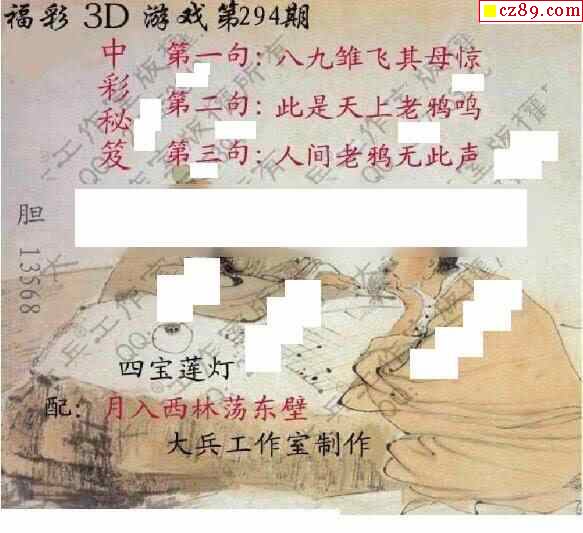 福彩 3D 游戏第294期
cz89.com
中彩秘笈
第一句：八九雏飞其母惊
第二句：此是天上老鸦鸣
第三句：人间老鸦无此声
胆 13568
四宝莲灯
配：月入西林荡东壁
大兵工作室制作